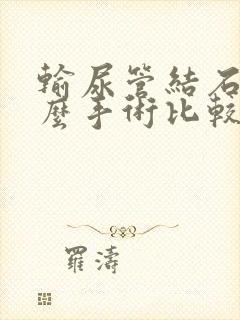 輸尿管結石
麼手術比較
羅濤